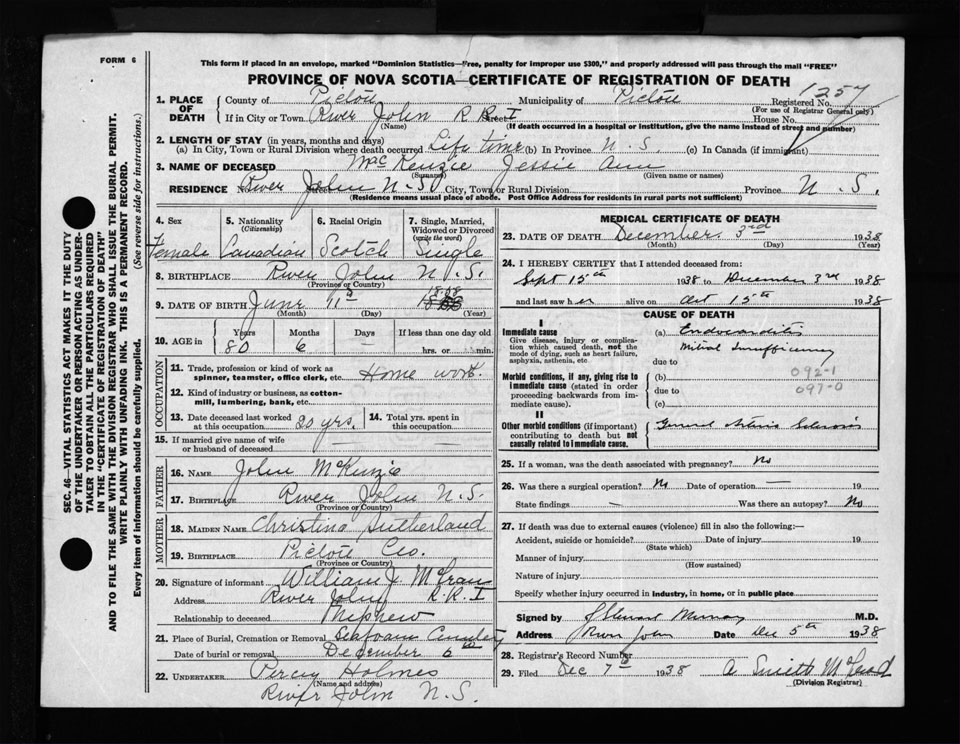 FORM 6
This form if placed in an envelope, marked "Dominion Statistics—Free, penalty for improper use $300," and properly addressed will pass through the mail "FREE"
PROVINCE OF NOVA SCOTIA—CERTIFICATE OF REGISTRATION OF DEATH
1257
1. PLACE OF DEATH
County of Pictou Municipality of Pictou Registered No.
(For use of Registrar General only)
If in City or Town River John R R I House No.
(Name) (If death occurred in a hospital or institution, give the name instead of street and number)
2. LENGTH OF STAY (in years, months and days)
(a) In City, Town or Rural Division where death occurred Life time (b) In Province N. S. (c) In Canada (if immigrant)
3. NAME OF DECEASED MacKenzie Jessie Ann
(Surname) (Given name or names)
RESIDENCE River John N.S. City, Town or Rural Division Province N. S.
(Residence means usual place of abode. Post Office Address for residents in rural parts not sufficient)
4. Sex Female
5. Nationality (Citizenship) Canadian
6. Racial Origin Scotch
7. Single, Married, Widowed or Divorced (write the word) Single
8. BIRTHPLACE River John N.S.
(Province or County)
9. DATE OF BIRTH June 11 1858
(Month) (Day) (Year)
10. AGE in Years 80 Months 6 Days — If less than one day old hrs. or min.
OCCUPATION
11. Trade, profession or kind of work as spinner, teamster, office clerk, etc. Home work.
12. Kind of industry or business, as cotton-mill, lumbering, bank, etc.
13. Date deceased last worked at this occupation 20 yrs.
14. Total yrs. spent in this occupation
15. If married give name of wife or husband of deceased —
FATHER
16. NAME John McKenzie
17. BIRTHPLACE River John N.S.
(Province or County)
MOTHER
18. MAIDEN NAME Christina Sutherland
19. BIRTHPLACE Pictou Co.
(Province or County)
20. Signature of informant William J.
Address River John R.R.I
Relationship to deceased Nephew
21. Place of Burial, Cremation or Removal Seafoam Cemetery
Date of burial or removal December 6th
22. UNDERTAKER Percy Holmes
(Name and address)
River John N.S.
MEDICAL CERTIFICATE OF DEATH
23. DATE OF DEATH December 3rd 1938
(Month) (Day) (Year)
24. I HEREBY CERTIFY that I attended deceased from:
Sept 15th 1938 to December 3rd 1938
and last saw her alive on Oct 15th 1938
CAUSE OF DEATH
I
Immediate cause
Give disease, injury or complication which caused death, not the mode of dying, such as heart failure, asphyxia, asthenia, etc
(a) Endocarditis
Mitral Insufficiency
due to
092-1
Morbid conditions, if any, giving rise to immediate cause (stated in order proceeding backwards from immediate cause).
(b)
due to
097-0
(c)
II
Other morbid conditions (if important) contributing to death but not causally related to immediate cause.
General Arterio Sclerosis
25. If a woman, was the death associated with pregnancy? No
26. Was there a surgical operation? No Date of operation — 19
State findings — Was there an autopsy? No
27. If death was due to external causes (violence) fill in also the following:—
Accident, suicide or homicide? Date of injury 19
(State which)
Manner of injury
(How sustained)
Nature of injury
Specify whether injury occurred in industry, in home, or in public place
Signed by Murray M.D.
Address River John Date Dec 5th 1938
28. Registrar's Record Number
29. Filed Dec 7th 1938
(Division Registrar)
SEC. 46—VITAL STATISTICS ACT MAKES IT THE DUTY
OF THE UNDERTAKER OR PERSON ACTING AS UNDER-
TAKER TO OBTAIN ALL THE PARTICULARS REQUIRED
IN THE "CERTIFICATE OF REGISTRATION OF DEATH"
AND TO FILE THE SAME WITH THE DIVISION REGISTRAR WHO SHALL ISSUE THE BURIAL PERMIT.
WRITE PLAINLY WITH UNFADING INK. THIS IS A PERMANENT RECORD.
Every item of information should be carefully supplied. (See reverse side for instructions.)